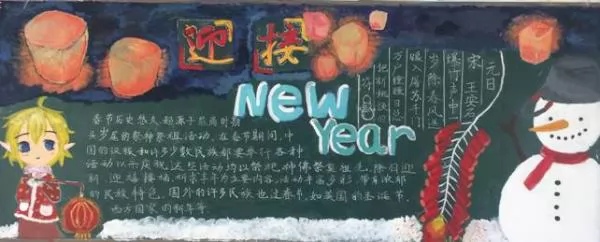 迎接
NEW
Year
元日
宋 王安石
爆竹声中一
岁除春风送
暖入屠苏千门
万户曈曈日总
把新桃换旧
符
春节历史悠久,起源于殷商时期
头岁尾的祭神祭祖活动。在春节期间,中
国的汉族和许多少数民族都要举行各种
活动以示庆祝,这些活动均以祭祀神佛祭奠祖先、除旧迎
新、迎禧接福、祈求丰年为主要内容。活动丰富多彩,带有浓郁
的民族特色。国外的许多民族也过春节,如英国的圣诞节、
西方国家的新年等。